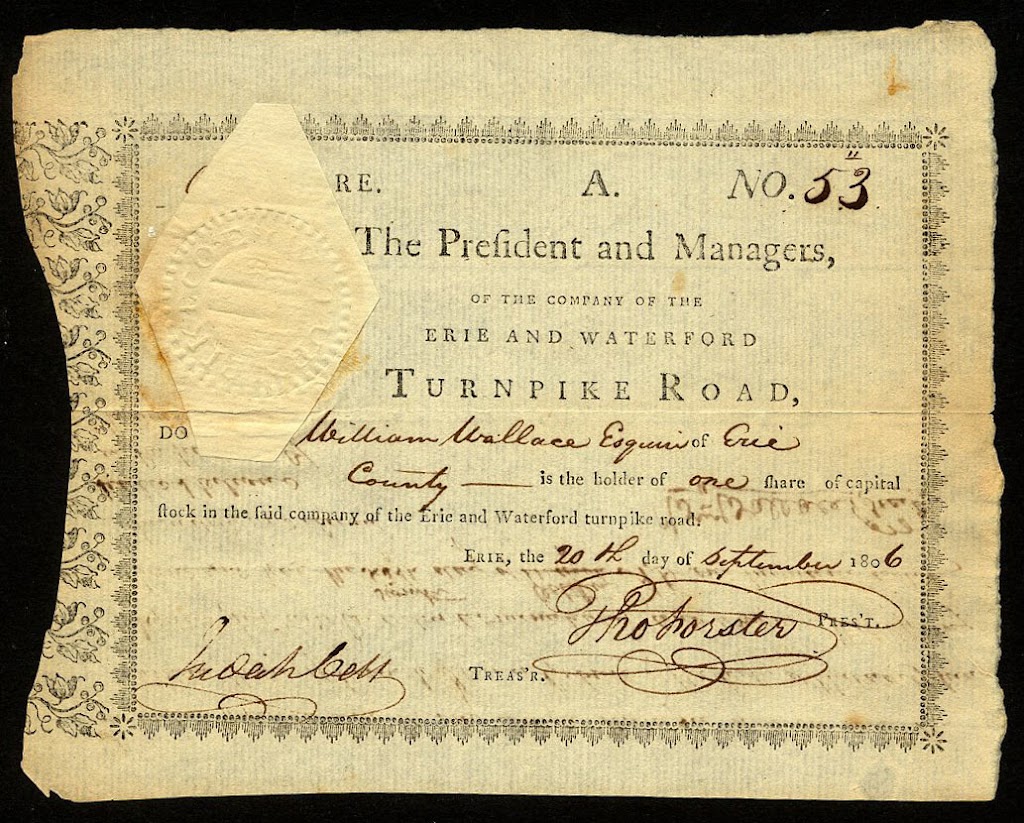 RE. A. NO. 53
The Preſident and Managers,
OF THE COMPANY OF THE
ERIE AND WATERFORD
TURNPIKE ROAD,
DO William Wallace Esquire of Erie
County — is the holder of one ſhare of capital
ſtock in the ſaid company of the Erie and Waterford turnpike road.
ERIE, the 20th day of September 1806
Tho Forster PRES'T.
Judah Colt TREAS'R.